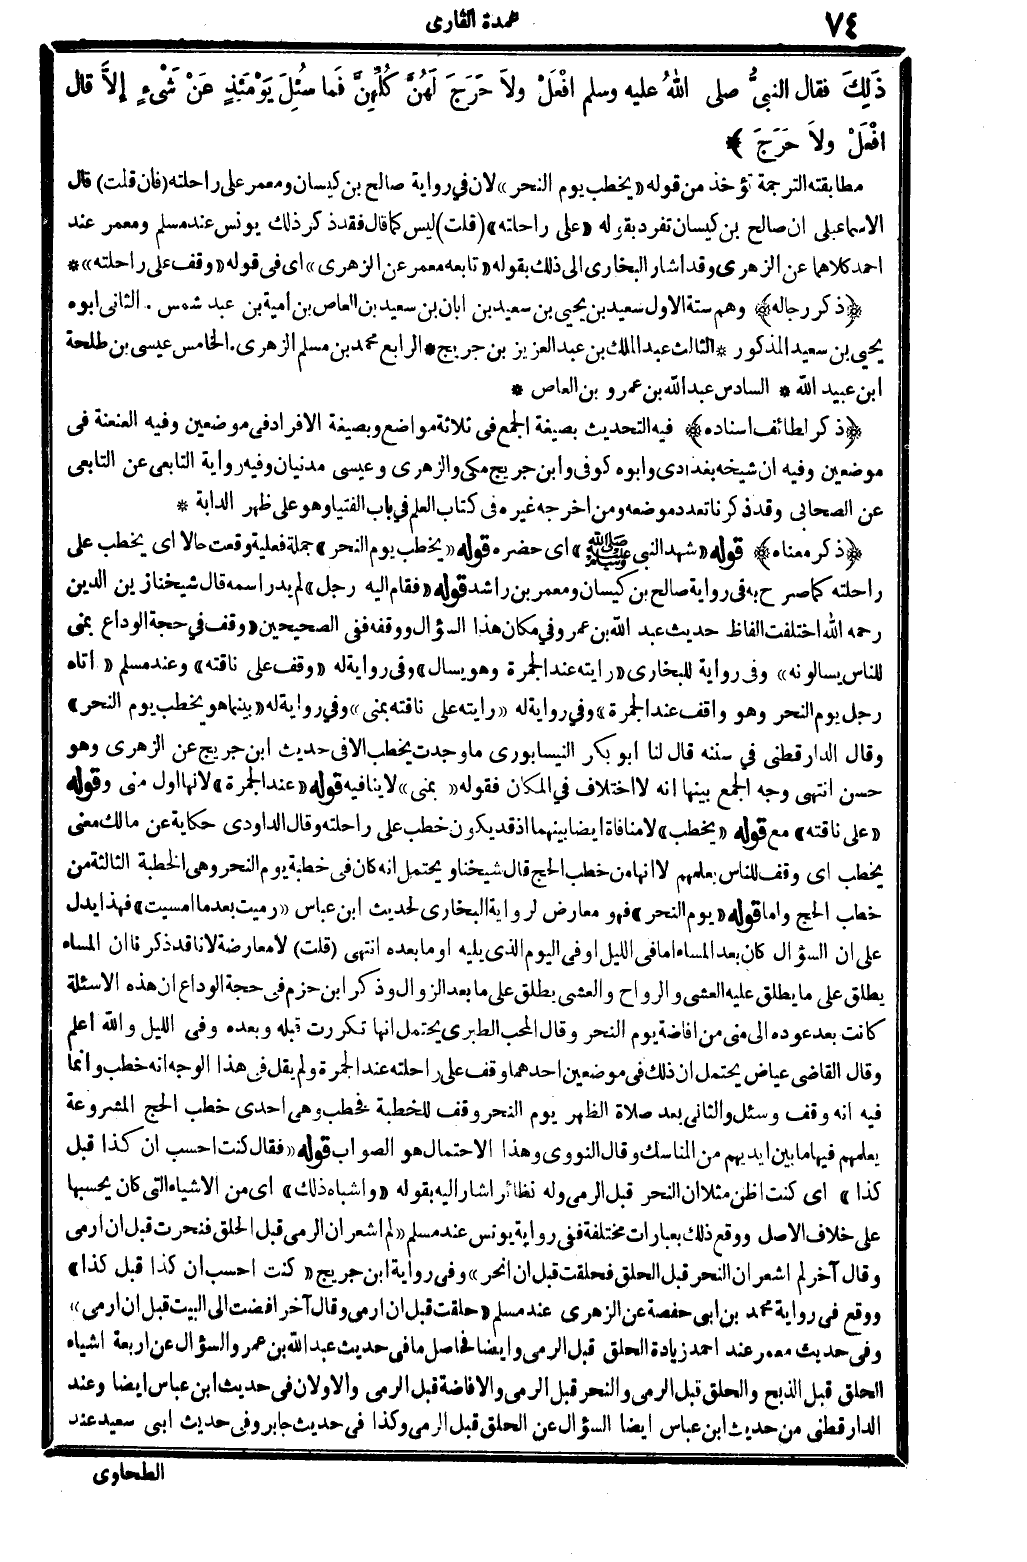 ٧٤
عمدة القارى
ذَلِكَ فقال النبىُّ صلى اللهُ عليه وسلم افْعَلْ ولاَ حَرَجَ لَهُنَّ كُلِّهِنَّ فَما سُئِلَ يَوْمَئِذٍ عَنْ شَىْءٍ إلاَّ قال
افْعَلْ ولاَ حَرَجَ ﴾
مطابقته الترجمة تؤخذ من قوله «يخطب يوم النحر» لان في رواية صالح بن كيسان ومعمر على راحلته (فان قلت) قال
الاسماعيلى ان صالح بن كيسان تفرد بقوله «على راحلته» (قلت) ليس كما قال فقد ذكر ذلك يونس عند مسلم ومعمر عند
احمد كلاهما عن الزهرى وقد اشار البخارى الى ذلك بقوله «تابعه معمر عن الزهرى» اى فى قوله «وقف على راحلته» *
﴿ذكر رجاله﴾ وهم ستة الاول سعيد بن يحيى بن سعيد بن ابان بن سعيد بن العاص بن امية بن عبد شمس . الثانى ابوه
يحيى بن سعيد المذكور * الثالث عبد الملك بن عبد العزيز بن جريج * الرابع محمد بن مسلم الزهرى . الخامس عيسى بن طلحة
ابن عبيد الله * السادس عبد الله بن عمرو بن العاص *
﴿ذكر لطائف اسناده﴾ فيه التحديث بصيغة الجمع فى ثلاثة مواضع وبصيغة الافراد فى موضعين وفيه العنعنة فى
موضعين وفيه ان شيخه بغدادى وابوه كوفى وابن جريج مكى والزهرى وعيسى مدنيان وفيه رواية التابعى عن التابعى
عن الصحابى وقد ذكرنا تعدد موضعه ومن اخرجه غيره فى كتاب العلم في باب الفتيا وهو على ظهر الدابة *
﴿ذكر معناه﴾ قوله «شهد النبى ﷺ» اى حضره قوله «يخطب يوم النحر» جملة فعلية وقعت حالا اى يخطب على
راحلته كما صرح به فى رواية صالح بن كيسان ومعمر بن راشد قوله «فقام اليه رجل» لم يدر اسمه قال شيخنا زين الدين
رحمه الله اختلفت الفاظ حديث عبد الله بن عمر وفي مكان هذا السؤال ووقفه ففى الصحيحين «وقف في حجة الوداع بمنى
للناس يسالونه» وفى رواية للبخارى «رايته عند الجمرة وهو يسال» وفى رواية له «وقف على ناقته» وعند مسلم «اتاه
رجل يوم النحر وهو واقف عند الجمرة» وفي رواية له «رايته على ناقته بمنى» وفي رواية له «بينما هو يخطب يوم النحر»
وقال الدارقطنى في سننه قال لنا ابو بكر النيسابورى ما وجدت يخطب الا فى حديث ابن جريج عن الزهرى وهو
حسن انتهى وجه الجمع بينها انه لا اختلاف في المكان فقوله «بمنى» لا ينافيه قوله «عند الجمرة» لانها اول منى وقوله
«على ناقته» مع قوله «يخطب» لا منافاة ايضا بينهما اذ قد يكون خطب على راحلته وقال الداودى حكاية عن مالك معنى
يخطب اى وقف للناس يعلمهم لا انها من خطب الحج قال شيخنا ويحتمل انه كان فى خطبة يوم النحر وهى الخطبة الثالثة من
خطب الحج واما قوله «يوم النحر» فهو معارض لرواية البخارى لحديث ابن عباس «رميت بعد ما امسيت» فهذا يدل
على ان السؤال كان بعد المساء اما فى الليل او فى اليوم الذى يليه او ما بعده انتهى (قلت) لا معارضة لانا قد ذكرنا ان المساء
يطلق على ما يطلق عليه العشى والرواح والعشى يطلق على ما بعد الزوال وذكر ابن حزم فى حجة الوداع ان هذه الاسئلة
كانت بعد عوده الى منى من افاضة يوم النحر وقال المحب الطبرى يحتمل انها تكررت قبله وبعده وفى الليل والله أعلم
وقال القاضى عياض يحتمل ان ذلك فى موضعين احدهما وقف على راحلته عند الجمرة ولم يقل فى هذا الوجه انه خطب وانما
فيه انه وقف وسئل والثانى بعد صلاة الظهر يوم النحر وقف للخطبة فخطب وهى احدى خطب الحج المشروعة
يعلمهم فيها ما بين ايديهم من المناسك وقال النووى وهذا الاحتمال هو الصواب قوله «فقال كنت احسب ان كذا قبل
كذا» اى كنت اظن مثلا ان النحر قبل الرمى وله نظائر اشار اليه بقوله «واشباه ذلك» اى من الاشياء التى كان يحسبها
على خلاف الاصل ووقع ذلك بعبارات مختلفة ففى رواية يونس عند مسلم «لم اشعر ان الرمى قبل الحلق فنحرت قبل ان ارمى
وقال آخر لم اشعر ان النحر قبل الحلق فحلقت قبل ان انحر» وفى رواية ابن جريج «كنت احسب ان كذا قبل كذا»
ووقع فى رواية محمد بن ابى حفصة عن الزهرى عند مسلم «حلقت قبل ان ارمى وقال آخر افضت الى البيت قبل ان ارمى»
وفى حديث معمر عند احمد زيادة الحلق قبل الرمى وايضا فحاصل ما فى حديث عبد الله بن عمر والسؤال عن اربعة اشياء
الحلق قبل الذبح والحلق قبل الرمى والنحر قبل الرمى والافاضة قبل الرمى والاولان فى حديث ابن عباس ايضا وعند
الدارقطنى من حديث ابن عباس ايضا السؤال عن الحلق قبل الرمى وكذا فى حديث جابر وفى حديث ابى سعيد عند
الطحاوى